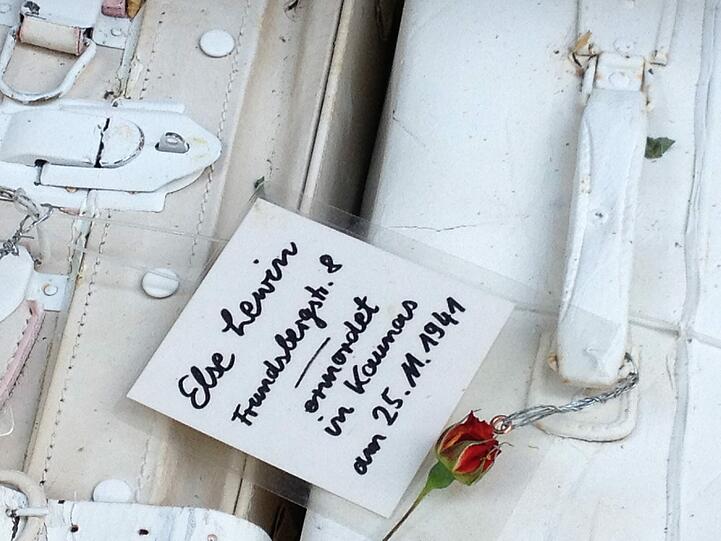 Else Lewin
Frundsbergstr. 8
ermordet
in Kaunas
am 25.11.1941